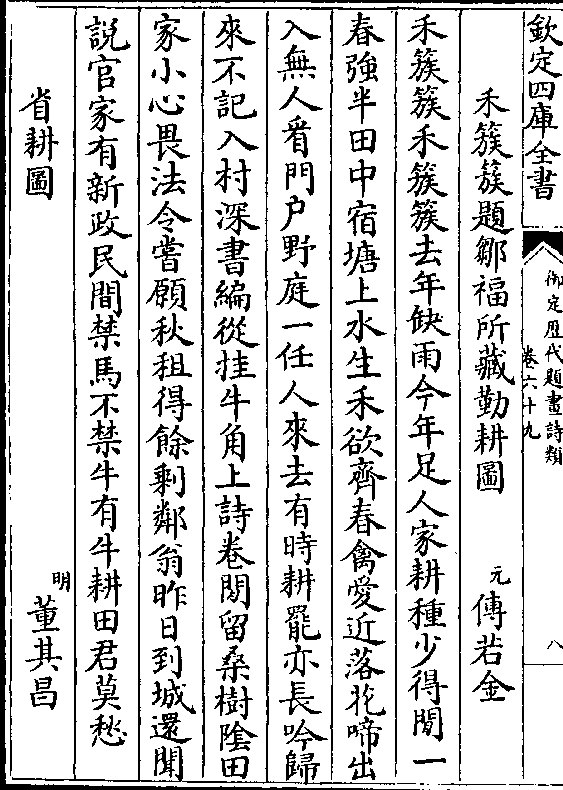 欽定四庫全書
御定歴代題畫詩類
卷六十九
八
禾簇簇題鄒福所藏勤耕圖
元
傅若金
禾簇簇禾簇簇去年缺雨今年足人家耕種少得閒一
春強半田中宿塘上水生禾欲齊春禽愛近落花啼出
入無人看門户野庭一任人來去有時耕罷亦長吟歸
來不記入村深書編從挂牛角上詩卷閒留桑樹隂田
家小心畏法令嘗願秋租得餘剩鄰翁昨日到城還聞
説官家有新政民間禁馬不禁牛有牛耕田君莫愁
省耕圖
明
董其昌